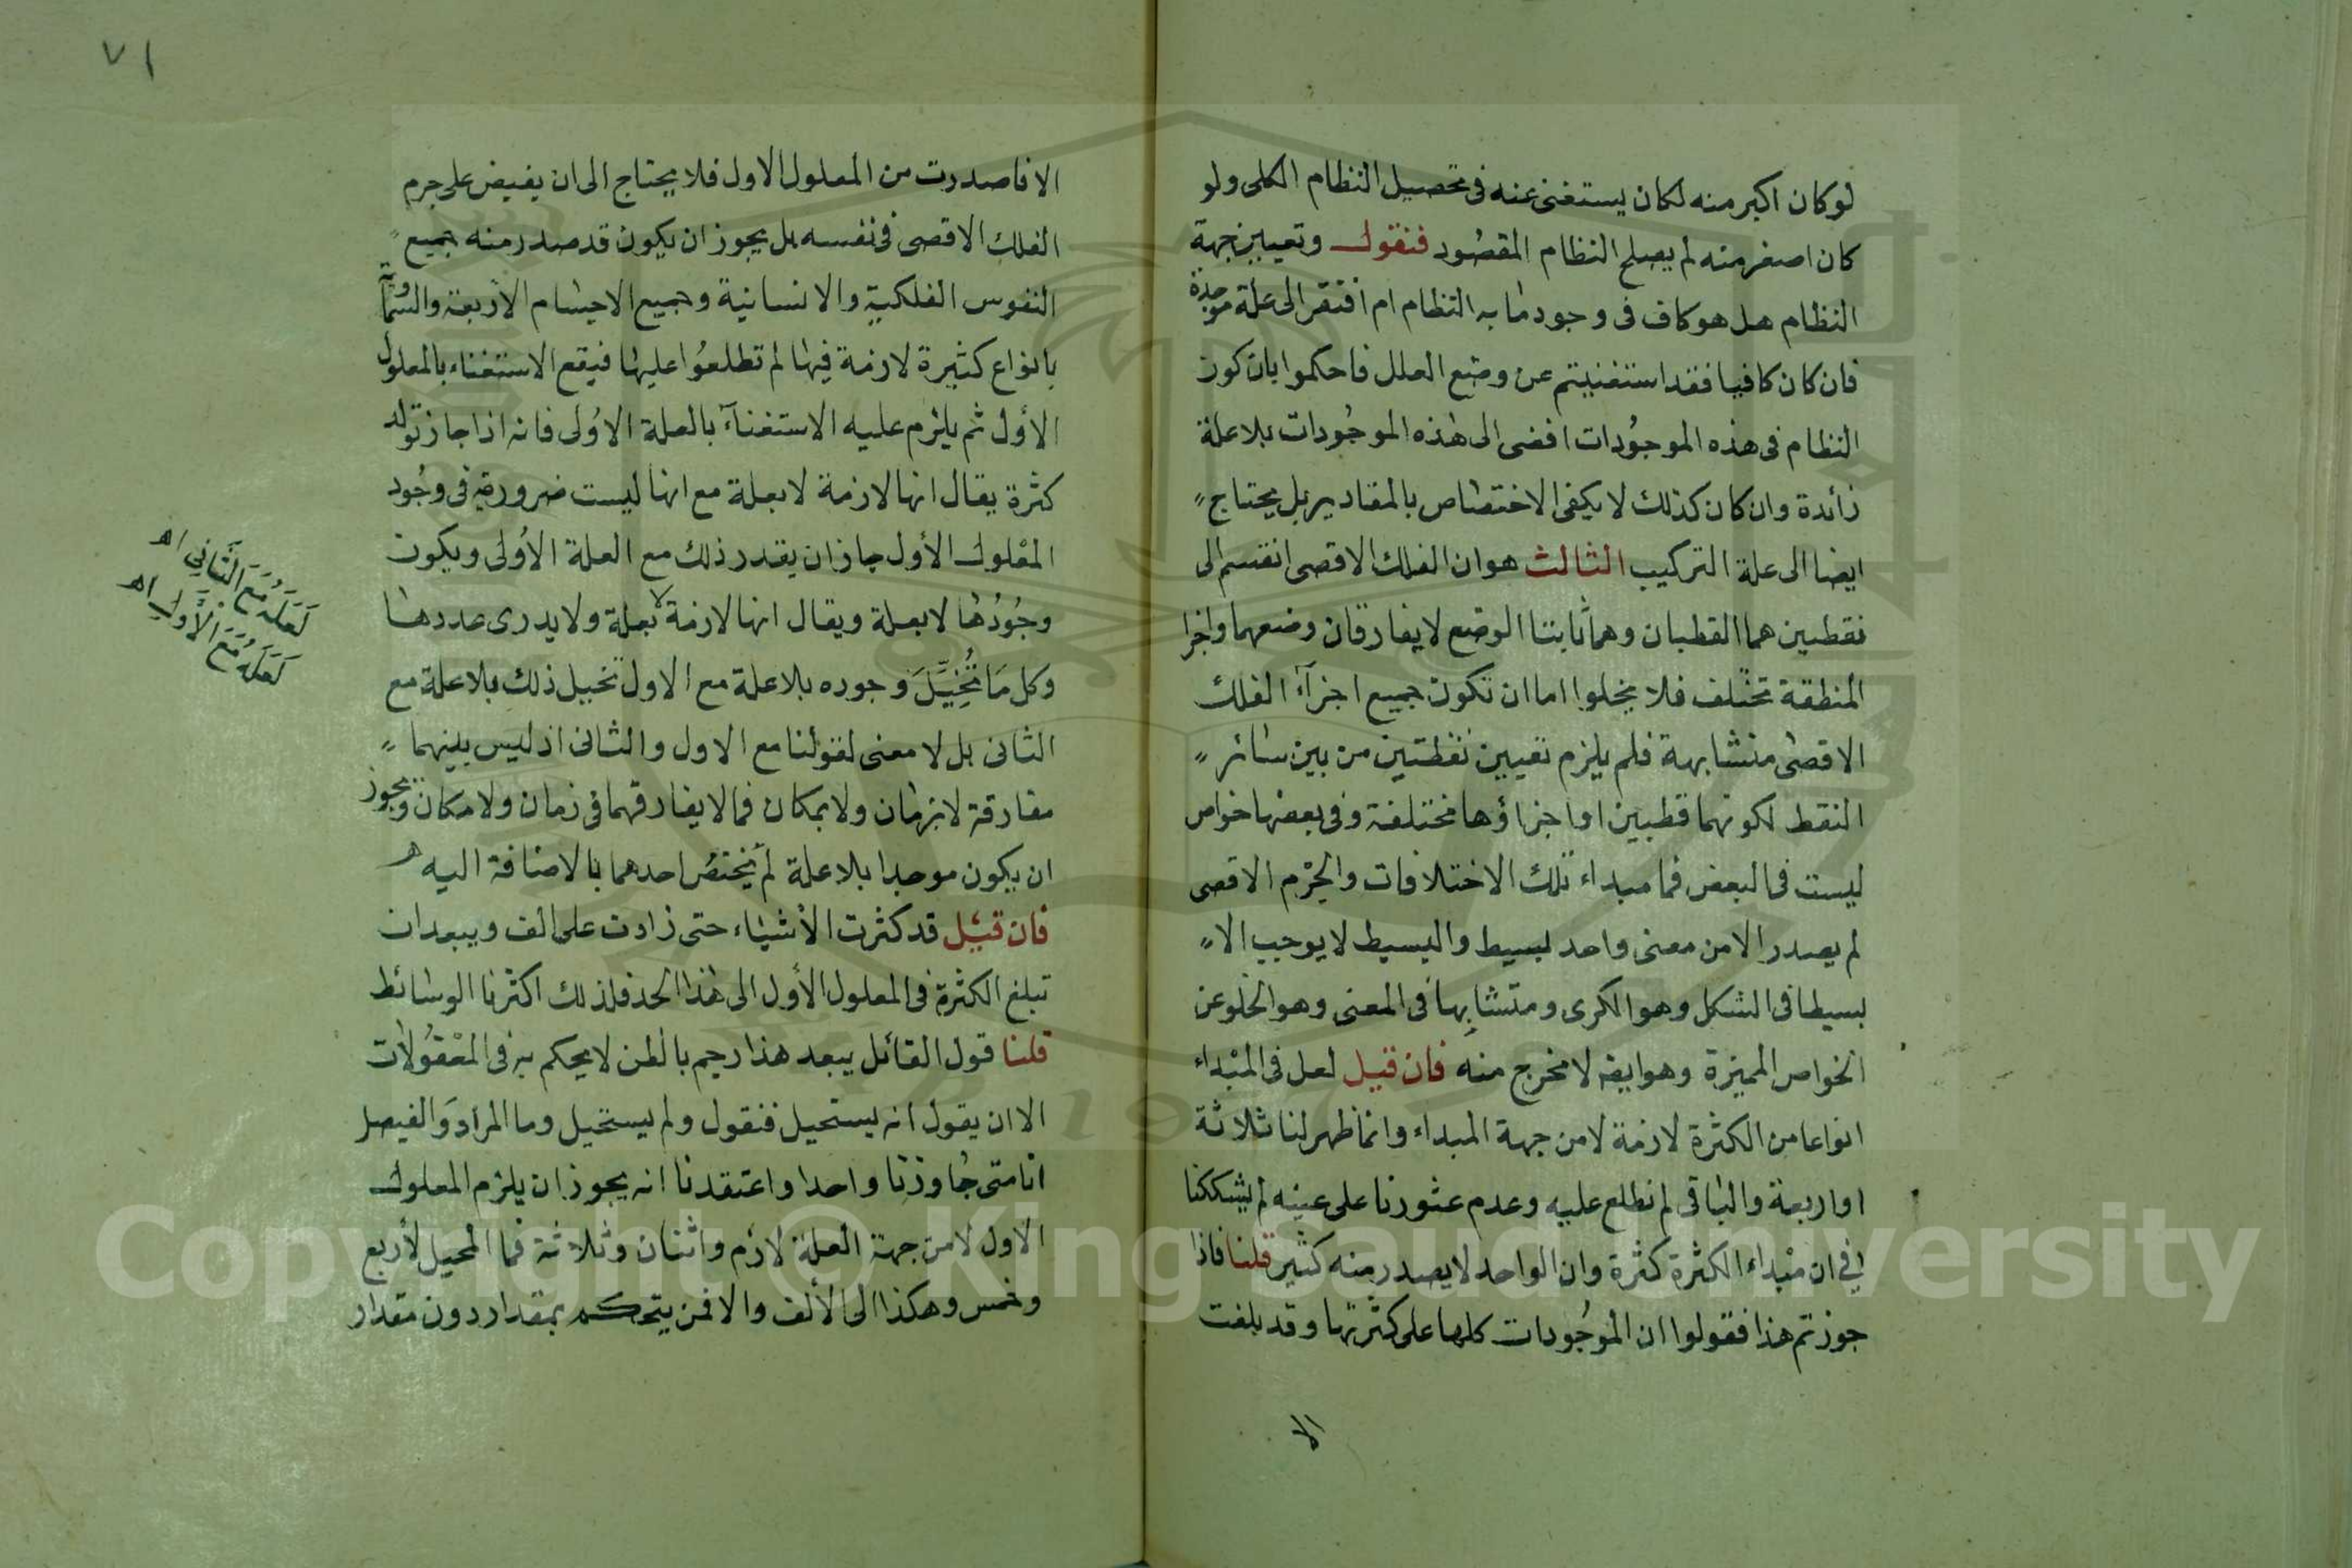 لو كان اكبر منه لكان يستغنى عنه فى تحصيل النظام الكلى ولو
كان اصغر منه لم يصلح النظام المقصود فنقول وتعيين جهة
النظام هل هو كاف فى وجود ما به النظام ام افتقر الى علة موجدة
فان كان كافيا فقد استغنيتم عن وضع العلل فاحكموا بان كون
النظام فى هذه الموجودات افضى الى هذه الموجودات بلا علة
زائدة وان كان كذلك لا يكفى الاختصاص بالمقادير بل يحتاج
ايضا الى علة التركيب الثالث هو ان الفلك الاقصى انقسم الى
نقطتين هما القطبان وهما ثابتا الوضع لا يفارقان وضعهما واجزا
المنطقة تختلف فلا يخلوا اما ان تكون جميع اجزآء الفلك
الاقصى متشابهة فلم يلزم تعيين نقطتين من بين سائر
النقط لكونهما قطبين او اجزاؤها مختلفة وفى بعضها خواص
ليست فى البعض فما مبداء تلك الاختلافات والجرم الاقصى
لم يصدر الا من معنى واحد بسيط والبسيط لا يوجب الا
بسيطا فى الشكل وهو الكرى ومتشابها فى المعنى وهو الخلو عن
الخواص المميزة وهو ايضا لا مخرج منه فان قيل لعل فى المبداء
انواعا من الكثرة لازمة لا من جهة المبداء وانما ظهر لنا ثلاثة
او اربعة والباقى لم نطلع عليه وعدم عثورنا على عينه لم يشككنا
في ان مبداء الكثرة كثرة وان الواحد لا يصدر منه كثير قلنا فاذا
جوزتم هذا فقولوا ان الموجودات كلها على كثرتها وقد بلغت
الا
٧١
الافا صدرت من المعلول الاول فلا يحتاج الى ان يفيض على جرم
الفلك الاقصى فى نفسه بل يجوز ان يكون قد صدر منه جميع
النفوس الفلكية والانسانية وجميع الاجسام الاربعة والسماوية
بانواع كثيرة لازمة فيها لم تطلعوا عليها فيقع الاستغناء بالمعلول
الأول ثم يلزم عليه الاستغنآء بالعلة الاولى فانه اذا جاز تولد
كثرة يقال انها لازمة لا بعلة مع انها ليست ضرورية فى وجود
المعلول الأول جاز ان يقدر ذلك مع العلة الأولى ويكون
وجودها لا بعلة ويقال انها لازمة لا بعلة ولا يدرى عددها
وكل ما تُخيِّل وجوده بلا علة مع الاول تخييل ذلك بلا علة مع
الثانى بل لا معنى لقولنا مع الاول والثانى اذ ليس بينهما
مفارقة لا بزمان ولا بمكان فما لا يفارقهما فى زمان ولا مكان ويجوز
ان يكون موجدا بلا علة لم يختص احدهما بالاضافة اليه
فان قيل قد كثرت الأشياء حتى زادت على الف ويبعد ان
تبلغ الكثرة فى المعلول الأول الى هذا الحد فلذلك اكثرنا الوسائط
قلنا قول القائل يبعد هذا رجم بالظن لا يحكم به فى المعقولات
الا ان يقول انه يستحيل فنقول ولم يستحيل وما المراد والفيصل
انا متى جاوزنا واحدا واعتقدنا انه يجوز ان يلزم المعلول
الاول لا من جهة العلة لازم واثنان وثلاثة فما المحيل لأربع
وخمس وهكذا الى الألف والا فمن يتحكم بمقدار دون مقدار
لَعَلَّهُ مَعَ الثَّانِي اه
لَعَلَّهُ مَعَ الْأَوَّلِ اه
Copyright © King Saud University